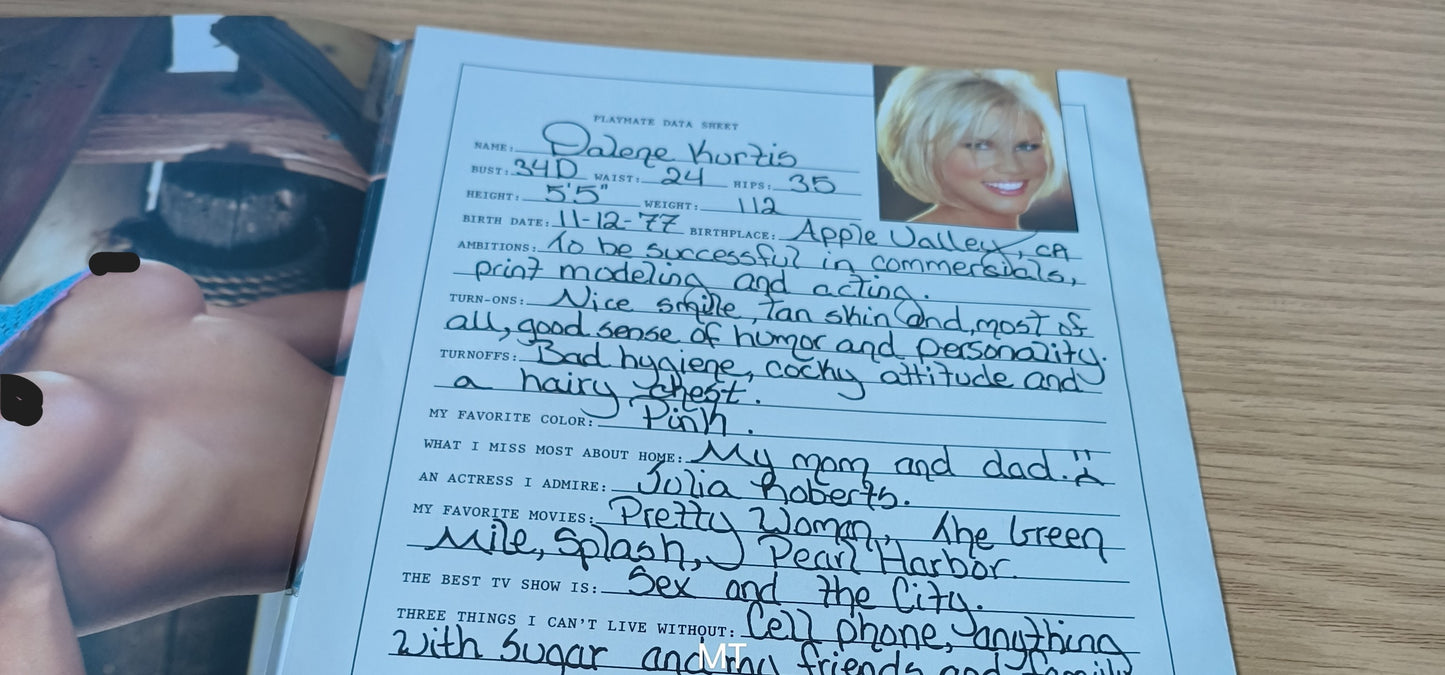 PLAYMATE DATA SHEET
NAME: Dalene Kurtis
BUST: 34D WAIST: 24 HIPS: 35
HEIGHT: 5'5" WEIGHT: 112
BIRTH DATE: 11-12-77 BIRTHPLACE: Apple Valley, CA
AMBITIONS: To be successful in commersials,
print modeling and acting.
TURN-ONS: Nice smile, Tan skin and, most of
all, good sense of humor and personality.
TURNOFFS: Bad hygiene, cocky attitude and
a hairy chest.
MY FAVORITE COLOR: Pink.
WHAT I MISS MOST ABOUT HOME: My mom and dad.
AN ACTRESS I ADMIRE: Julia Roberts.
MY FAVORITE MOVIES: Pretty Woman, The Green
Mile, Splash, Pearl Harbor.
THE BEST TV SHOW IS: Sex and the City.
THREE THINGS I CAN'T LIVE WITHOUT: Cell phone, anything
with sugar and my friends and family
MT